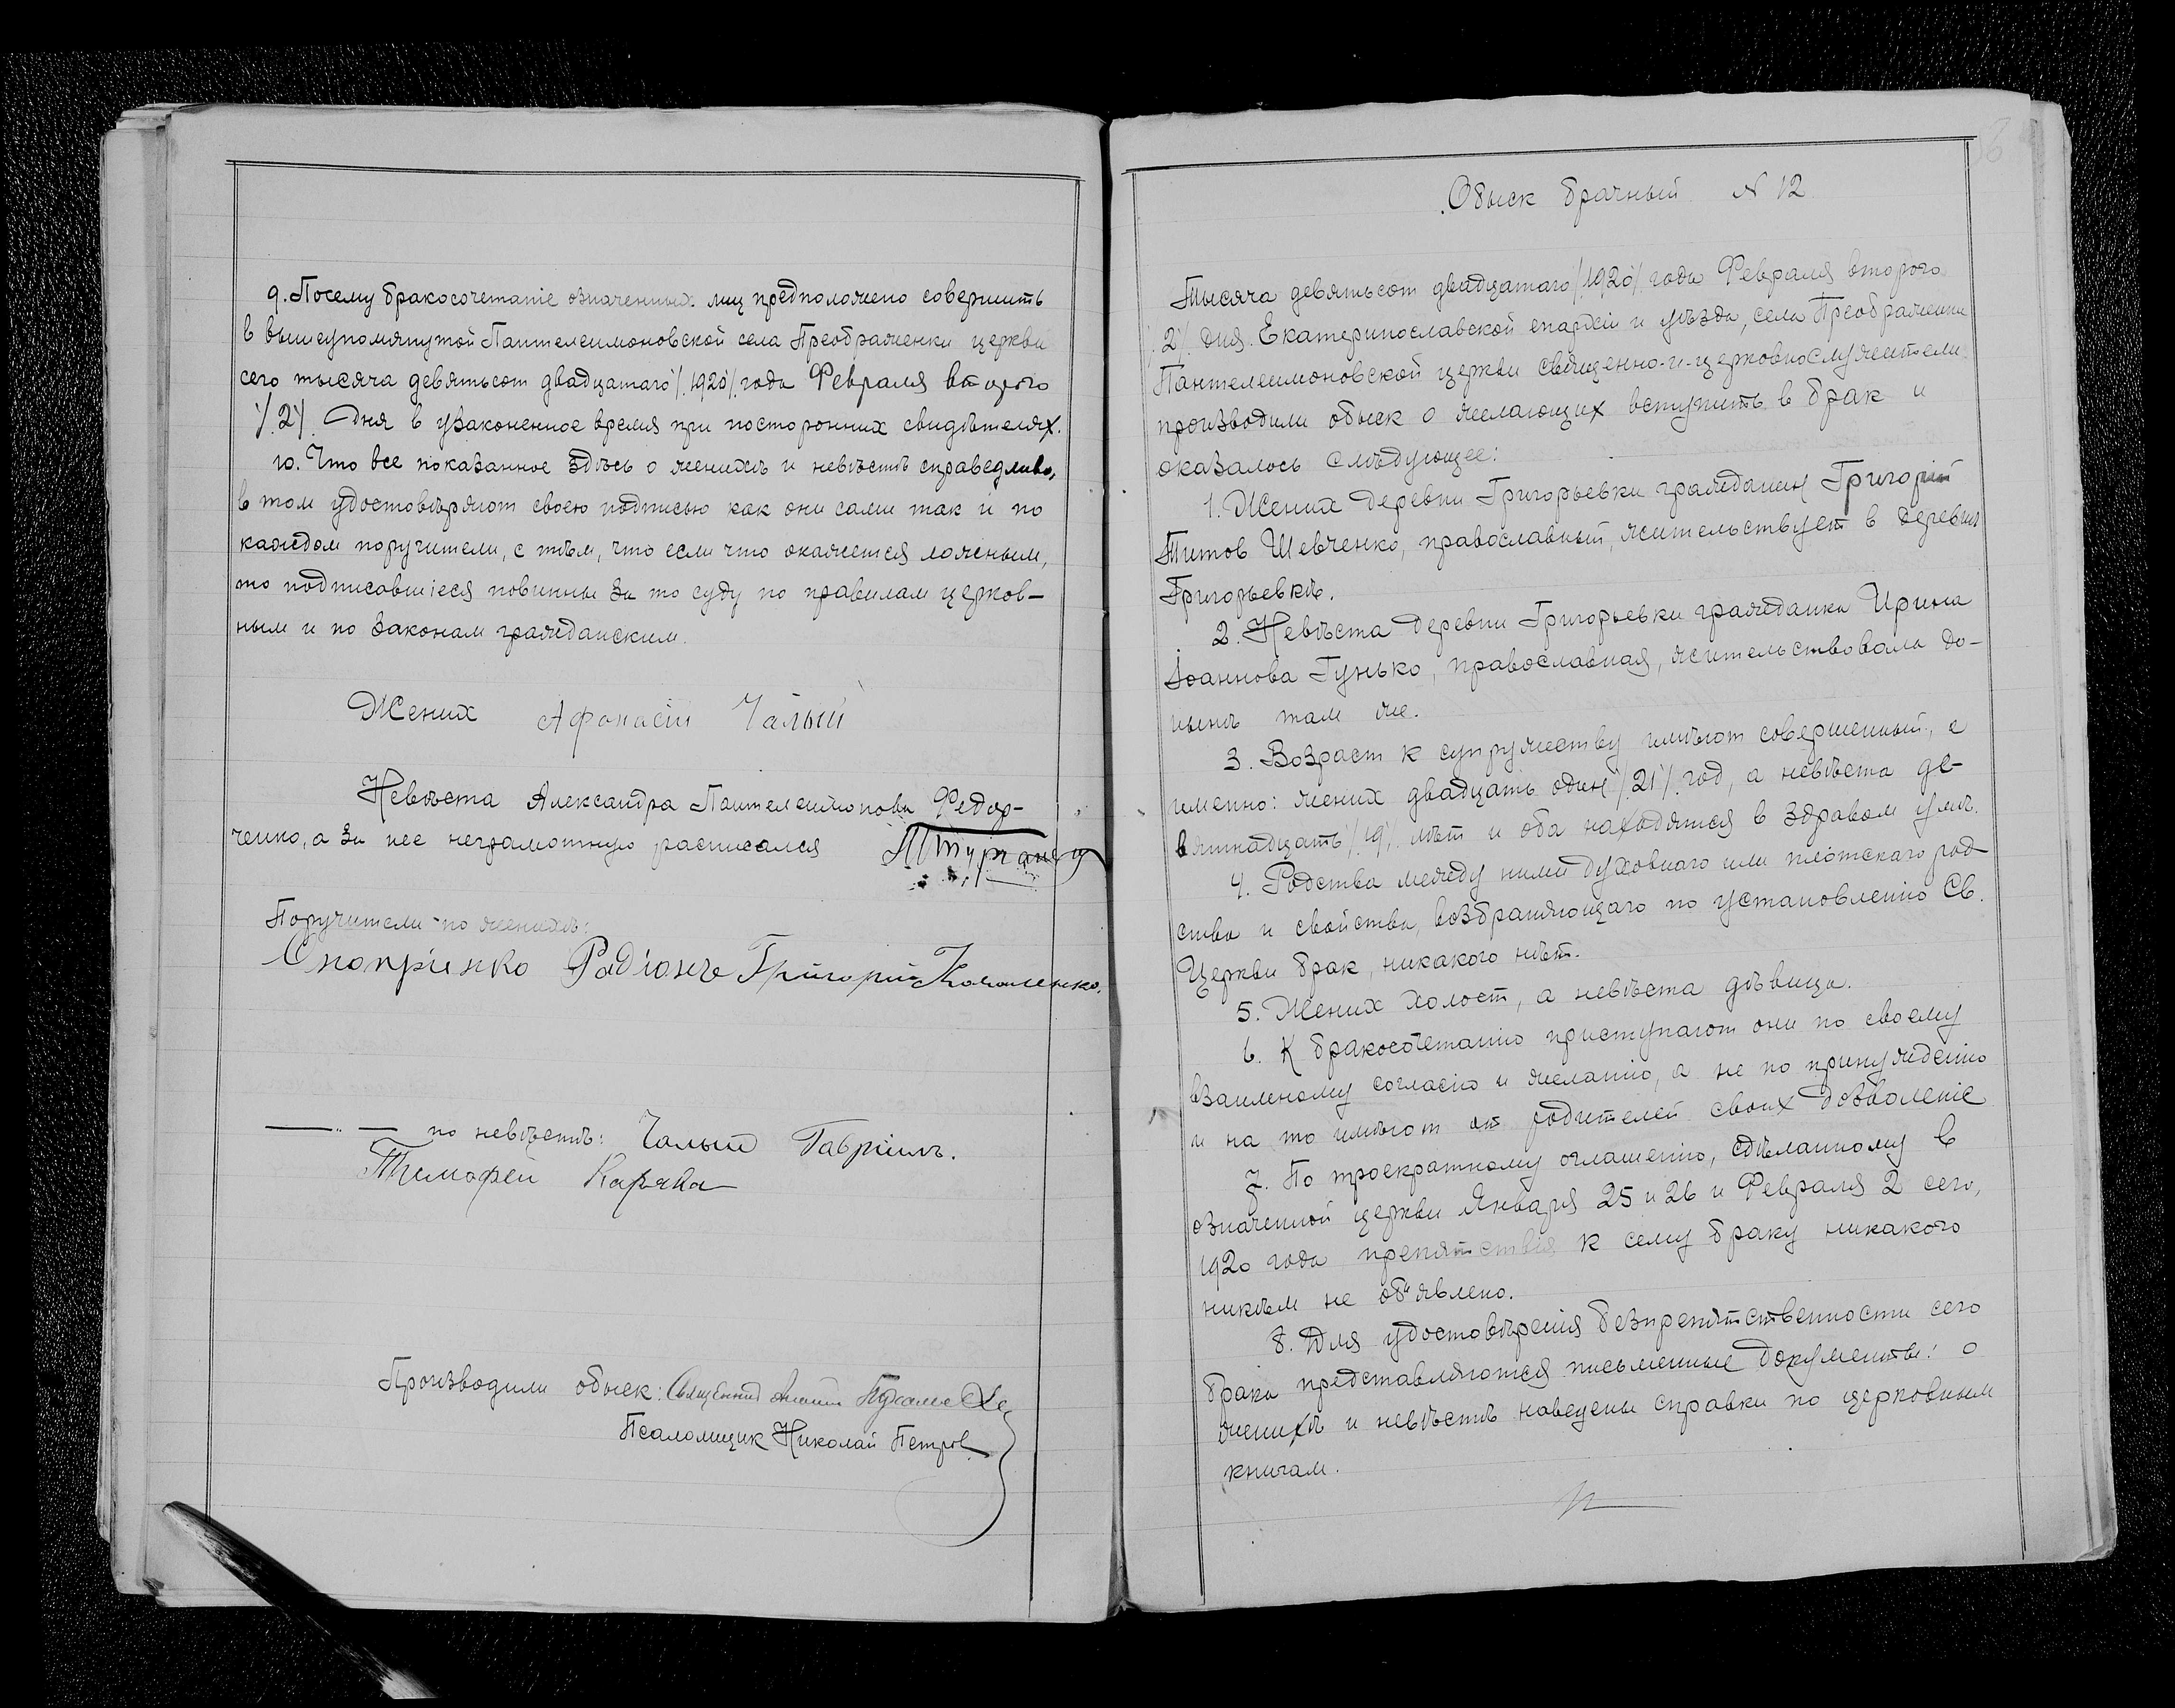 9. Посему бракосочетаніе означенных лиц предположено совершить
в вышеупомянутой Пантелеимоновской села Преображенки церкви
сего тысяча девятьсот двадцатаго /1920/ года Февраля второго
/2/ дня в узаконенное время при посторонних свидѣтелях.
10. Что все показанное здѣсь о женихѣ и невѣстѣ справедливо,
в том удостовѣряют своею подписью как они сами так и по
каждом поручители, с тѣм, что если что окажется ложным,
то подписавшіеся повинны за то суду по правилам церков-
ным и по законам гражданским.
Жених Афонасій Чалый
Невѣста Александра Пантелеимонова Федор-
ченко, а за нее неграмотную расписался
Поручители по женихѣ:
Радіонъ Григорій Коваленко.
—〃— по невѣстѣ: Чалый Гавріилъ.
Тимофей Карака
Производили обыск: Священник
Псаломщик Николай Петров
Обыск брачный N 12
Тысяча девятьсот двадцатаго /1920/ года Февраля второго
/2/ дня. Екатеринославской епархіи и уѣзда, села Преображенки
Пантелеимоновской церкви священно-и-церковнослужители
производили обыск о желающих вступить в брак и
оказалось слѣдующее:
1. Жених деревни Григорьевки гражданин Григорій
Титов Шевченко, православный, жительствует в деревнѣ
Григорьевкѣ.
2. Невѣста деревни Григорьевки гражданка Ирина
Іоаннова Гунько, православная, жительствовала до-
нынѣ там же.
3. Возраст к супружеству имѣют совершенный, а
именно: жених двадцать один /21/ год, а невѣста де-
вятнадцать /19/ лѣт и оба находятся в здравом умѣ.
4. Родства между ними духовнаго или плотскаго род
ства и свойства, возбраняющаго по установленію Св.
Церкви брак, никакого нѣт.
5. Жених холост, а невѣста дѣвица.
6. К бракосочетанію приступают они по своему
взаимному согласію и желанію, а не по принужденію
и на то имѣют от родителей своих дозволеніе
7. По троекратному оглашенію, сдѣланному в
означенной церкви Января 25 и 26 и Февраля 2 сего,
1920 года препятствія к сему браку никакого
никѣм не об"явлено.
8. Для удостовѣренія безпрепятственности сего
брака представляются письменные документы: о
женихѣ и невѣстѣ наведены справки по церковным
книгам.